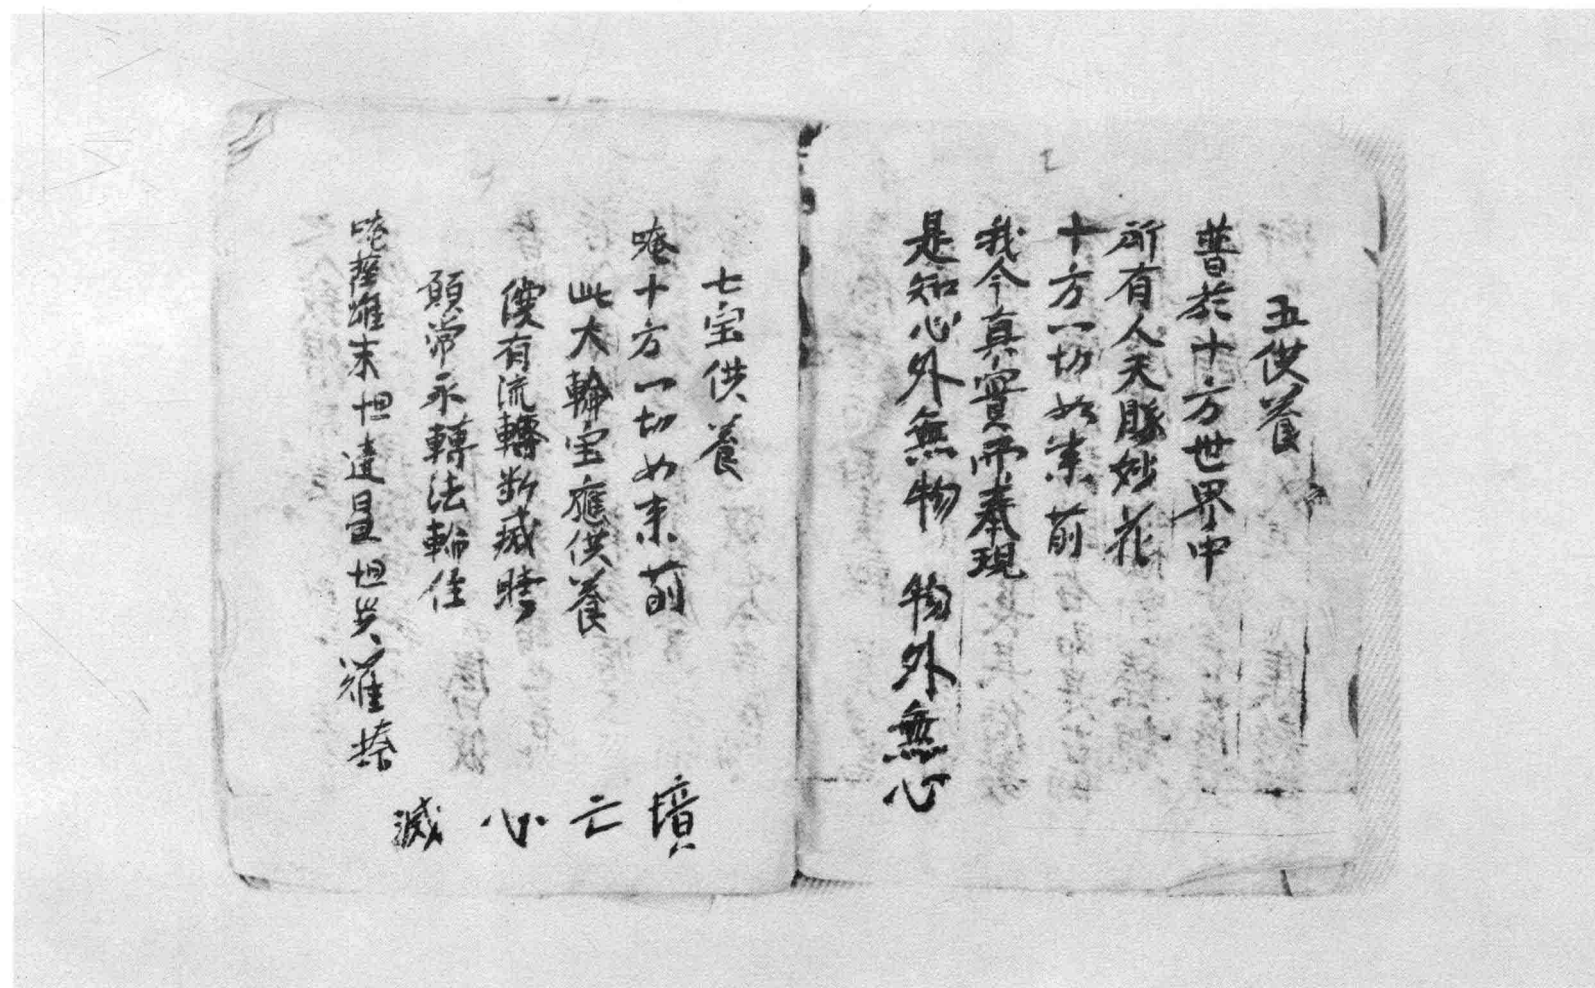 五供養
普於十方世界中
所有人天勝妙花
十方一切如来前
我今真實而奉現
是知心外無物 物外無心
七宝供養
唵十方一切如来前
此大輪宝應供養
有流轉断滅時
願常永轉法輪住
唵薩嚩末怛達曼怛
境亡心滅